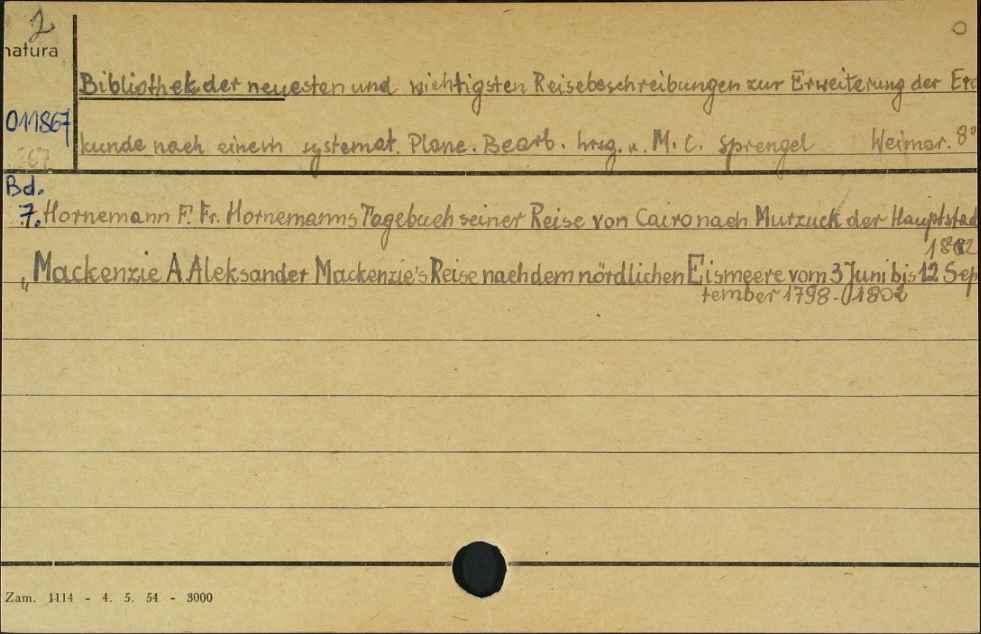 2
natura
Bibliothek der neuesten und wichtigsten Reisebeschreibungen zur Erweiterung der Erd
011867
kunde nach einem systemat. Plane. Bearb. hrsg. v. M. C. Sprengel Weimar. 8°
Bd.
7. Hornemann F. Fr. Hornemanns Tagebuch seiner Reise von Cairo nach Murzuck der Hauptstad
1802
„ Mackenzie A Aleksander Mackenzie's Reise nach dem nördlichen Eismeere vom 3 Juni bis 12 Sep
tember 1798. 1802
Zam. 1114 - 4. 5. 54 - 3000